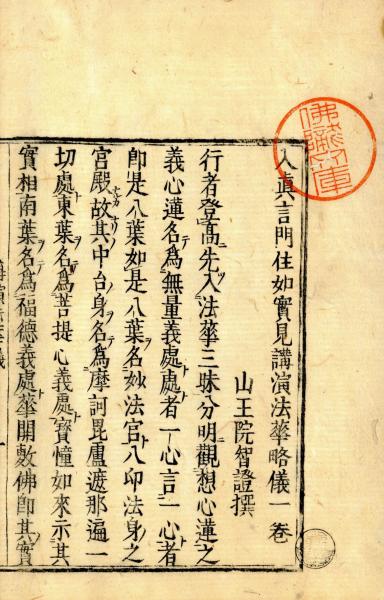 入真言門住如實見講演法華略儀一卷
山王院智證撰
行者登髙先入法華三昧分明觀想心蓮之
義心蓮名爲無量義處處者一心言一心者
即是八葉如是八葉名妙法宮八印法身之
宮殿故其中台身名爲摩訶毘盧遮那遍一
切處東葉名爲菩提心義處寶憧如來示其
實相南葉名爲福德義處華開敷佛即其實